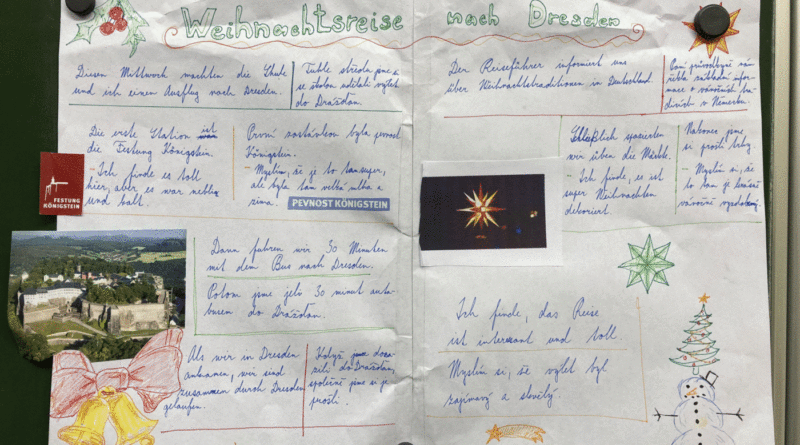 Weihnachtsreise nach Dresden
Diesen Mittwoch machten die Schule
und ich einen Ausflug nach Dresden.
Tuhle středu jsme
se školou udělali výlet
do Drážďan.
Die erste Station
die Festung Königstein.
- Ich finde es toll
hier, aber es war neblig
und kalt.
První zastávkou byla pevnost
Königstein.
- Myslím, že je to tam super,
ale byla tam velká mlha a
zima.
PEVNOST KÖNIGSTEIN
FESTUNG
KÖNIGSTEIN
Dann fuhren wir 30 Minuten
mit dem Bus nach Dresden.
Potom jsme jeli 30 minut auto-
busem do Drážďan.
Als wir in Dresden
ankamen, wir sind
zusammen durch Dresden
gelaufen.
Když jsme dora-
zili do Drážďan,
společně jsme si je
prošli.
Der Reiseführer informiert uns
über Weihnachtstraditionen in Deutschland.
Paní průvodkyně nám
základní infor-
mace o vánočních tra-
dicích v Německu.
Schließlich spazierten
wir über die Märkte.
- Ich finde, es ist
super Weihnachten
dekoriert.
Nakonec jsme
si prošli trhy.
- Myslím si, že
to tam je krásně
vánočně vyzdobený.
Ich finde, das Reise
ist interessant und toll.
Myslím si, že výlet byl
zajímavý a skvělý.